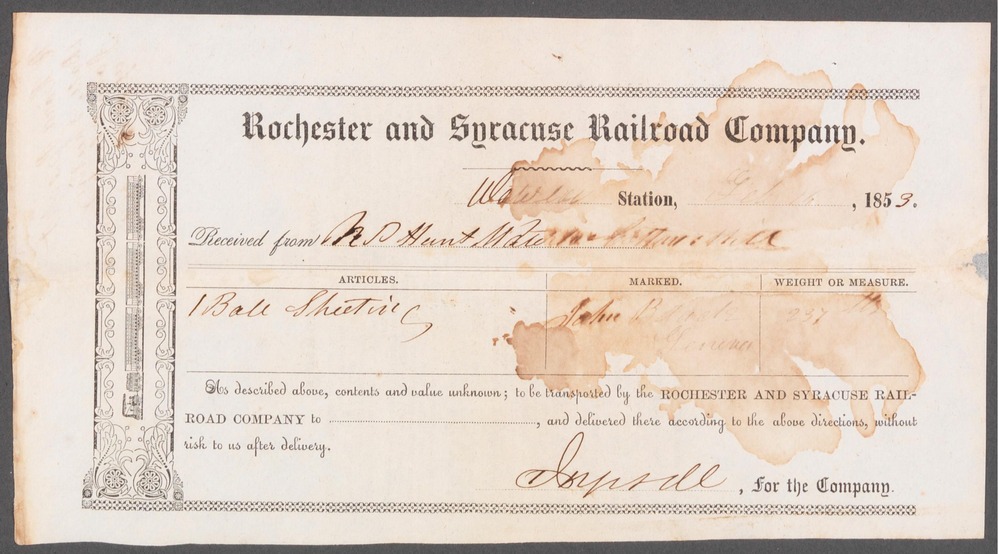 Rochester and Syracuse Railroad Company.
Station, , 1853.
Received from R P Hunt
ARTICLES. MARKED. WEIGHT OR MEASURE.
1 Bale Sheeting John 257
As described above, contents and value unknown; to be transported by the ROCHESTER AND SYRACUSE RAIL-
ROAD COMPANY to , and delivered there according to the above directions, without
risk to us after delivery.
, For the Company.